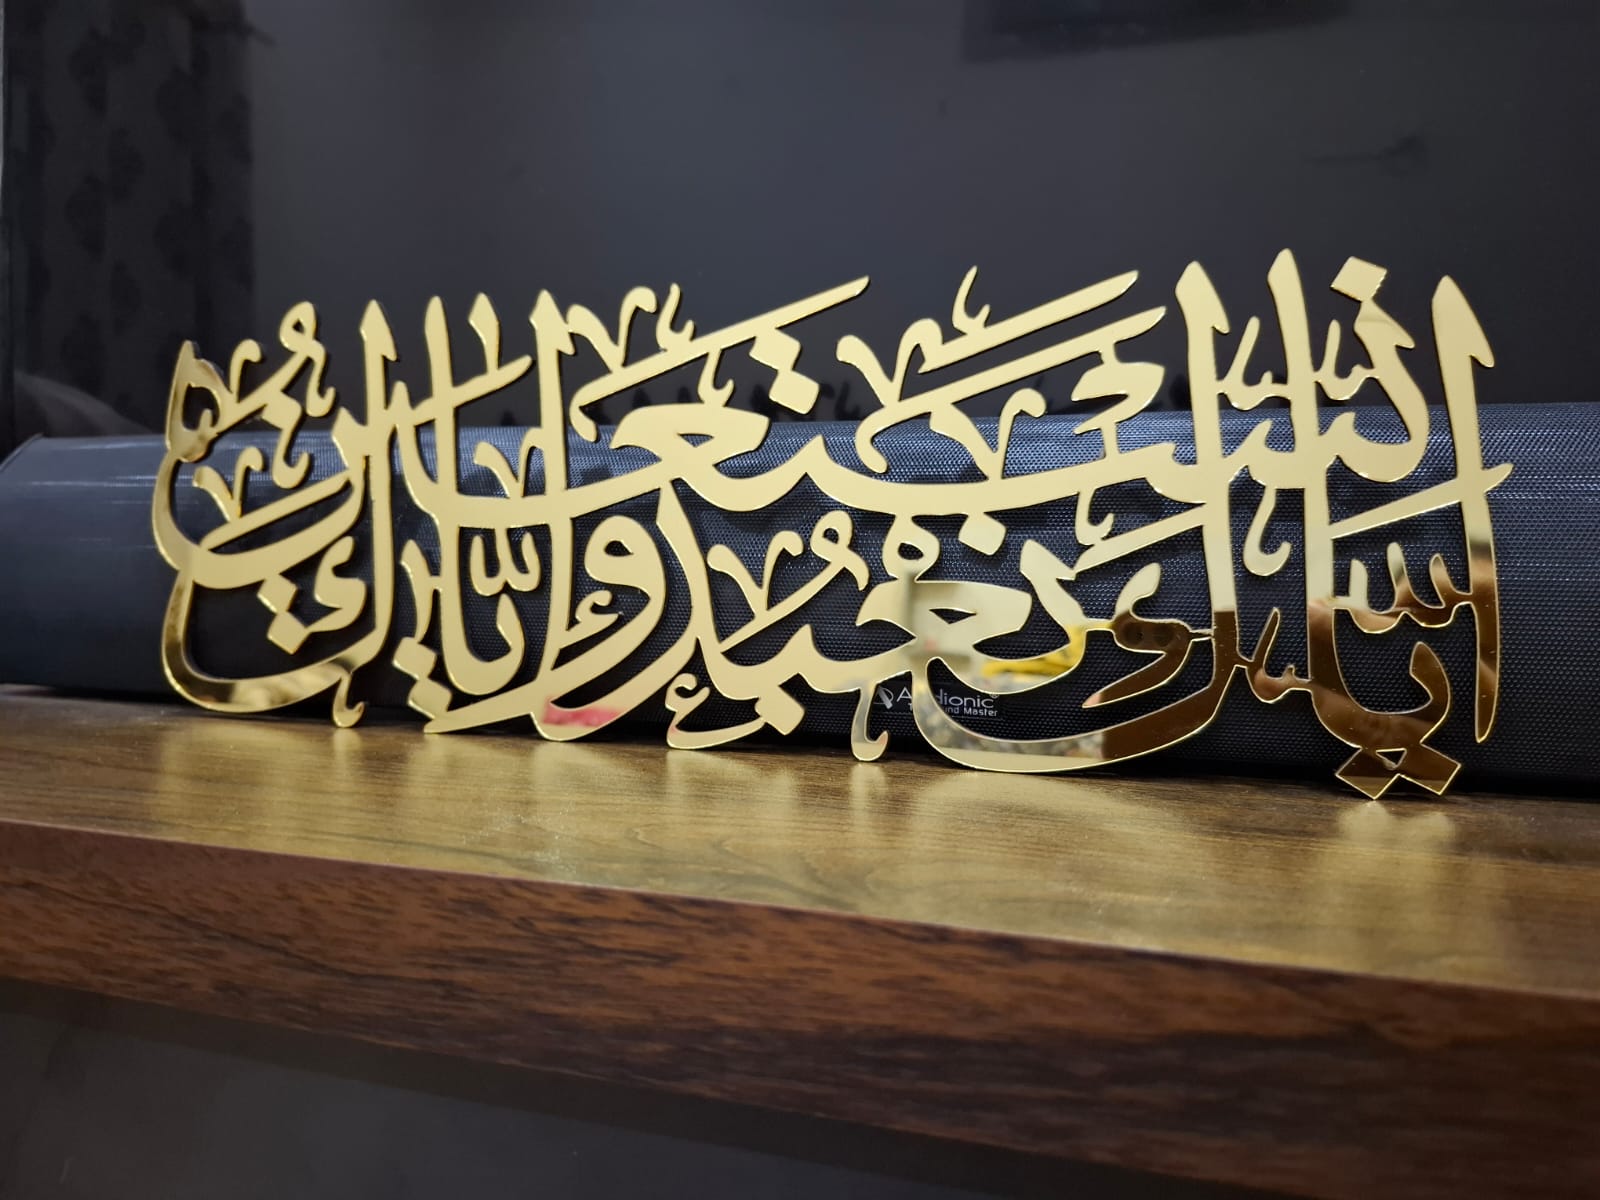 إياك نعبد وإياك نستعين
Audionic®
The Sound Master